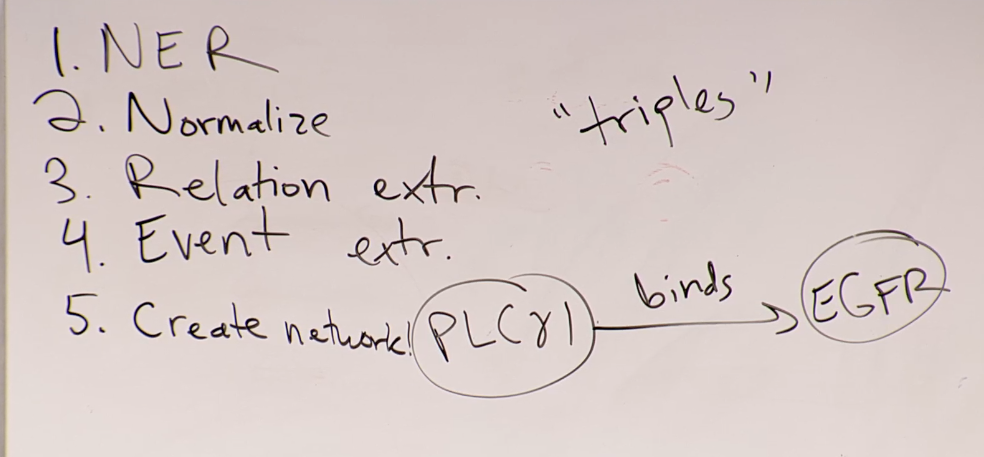 1. NER
2. Normalize
"triples"
3. Relation extr.
4. Event extr.
binds
5. Create network! PLCγ1 EGFR